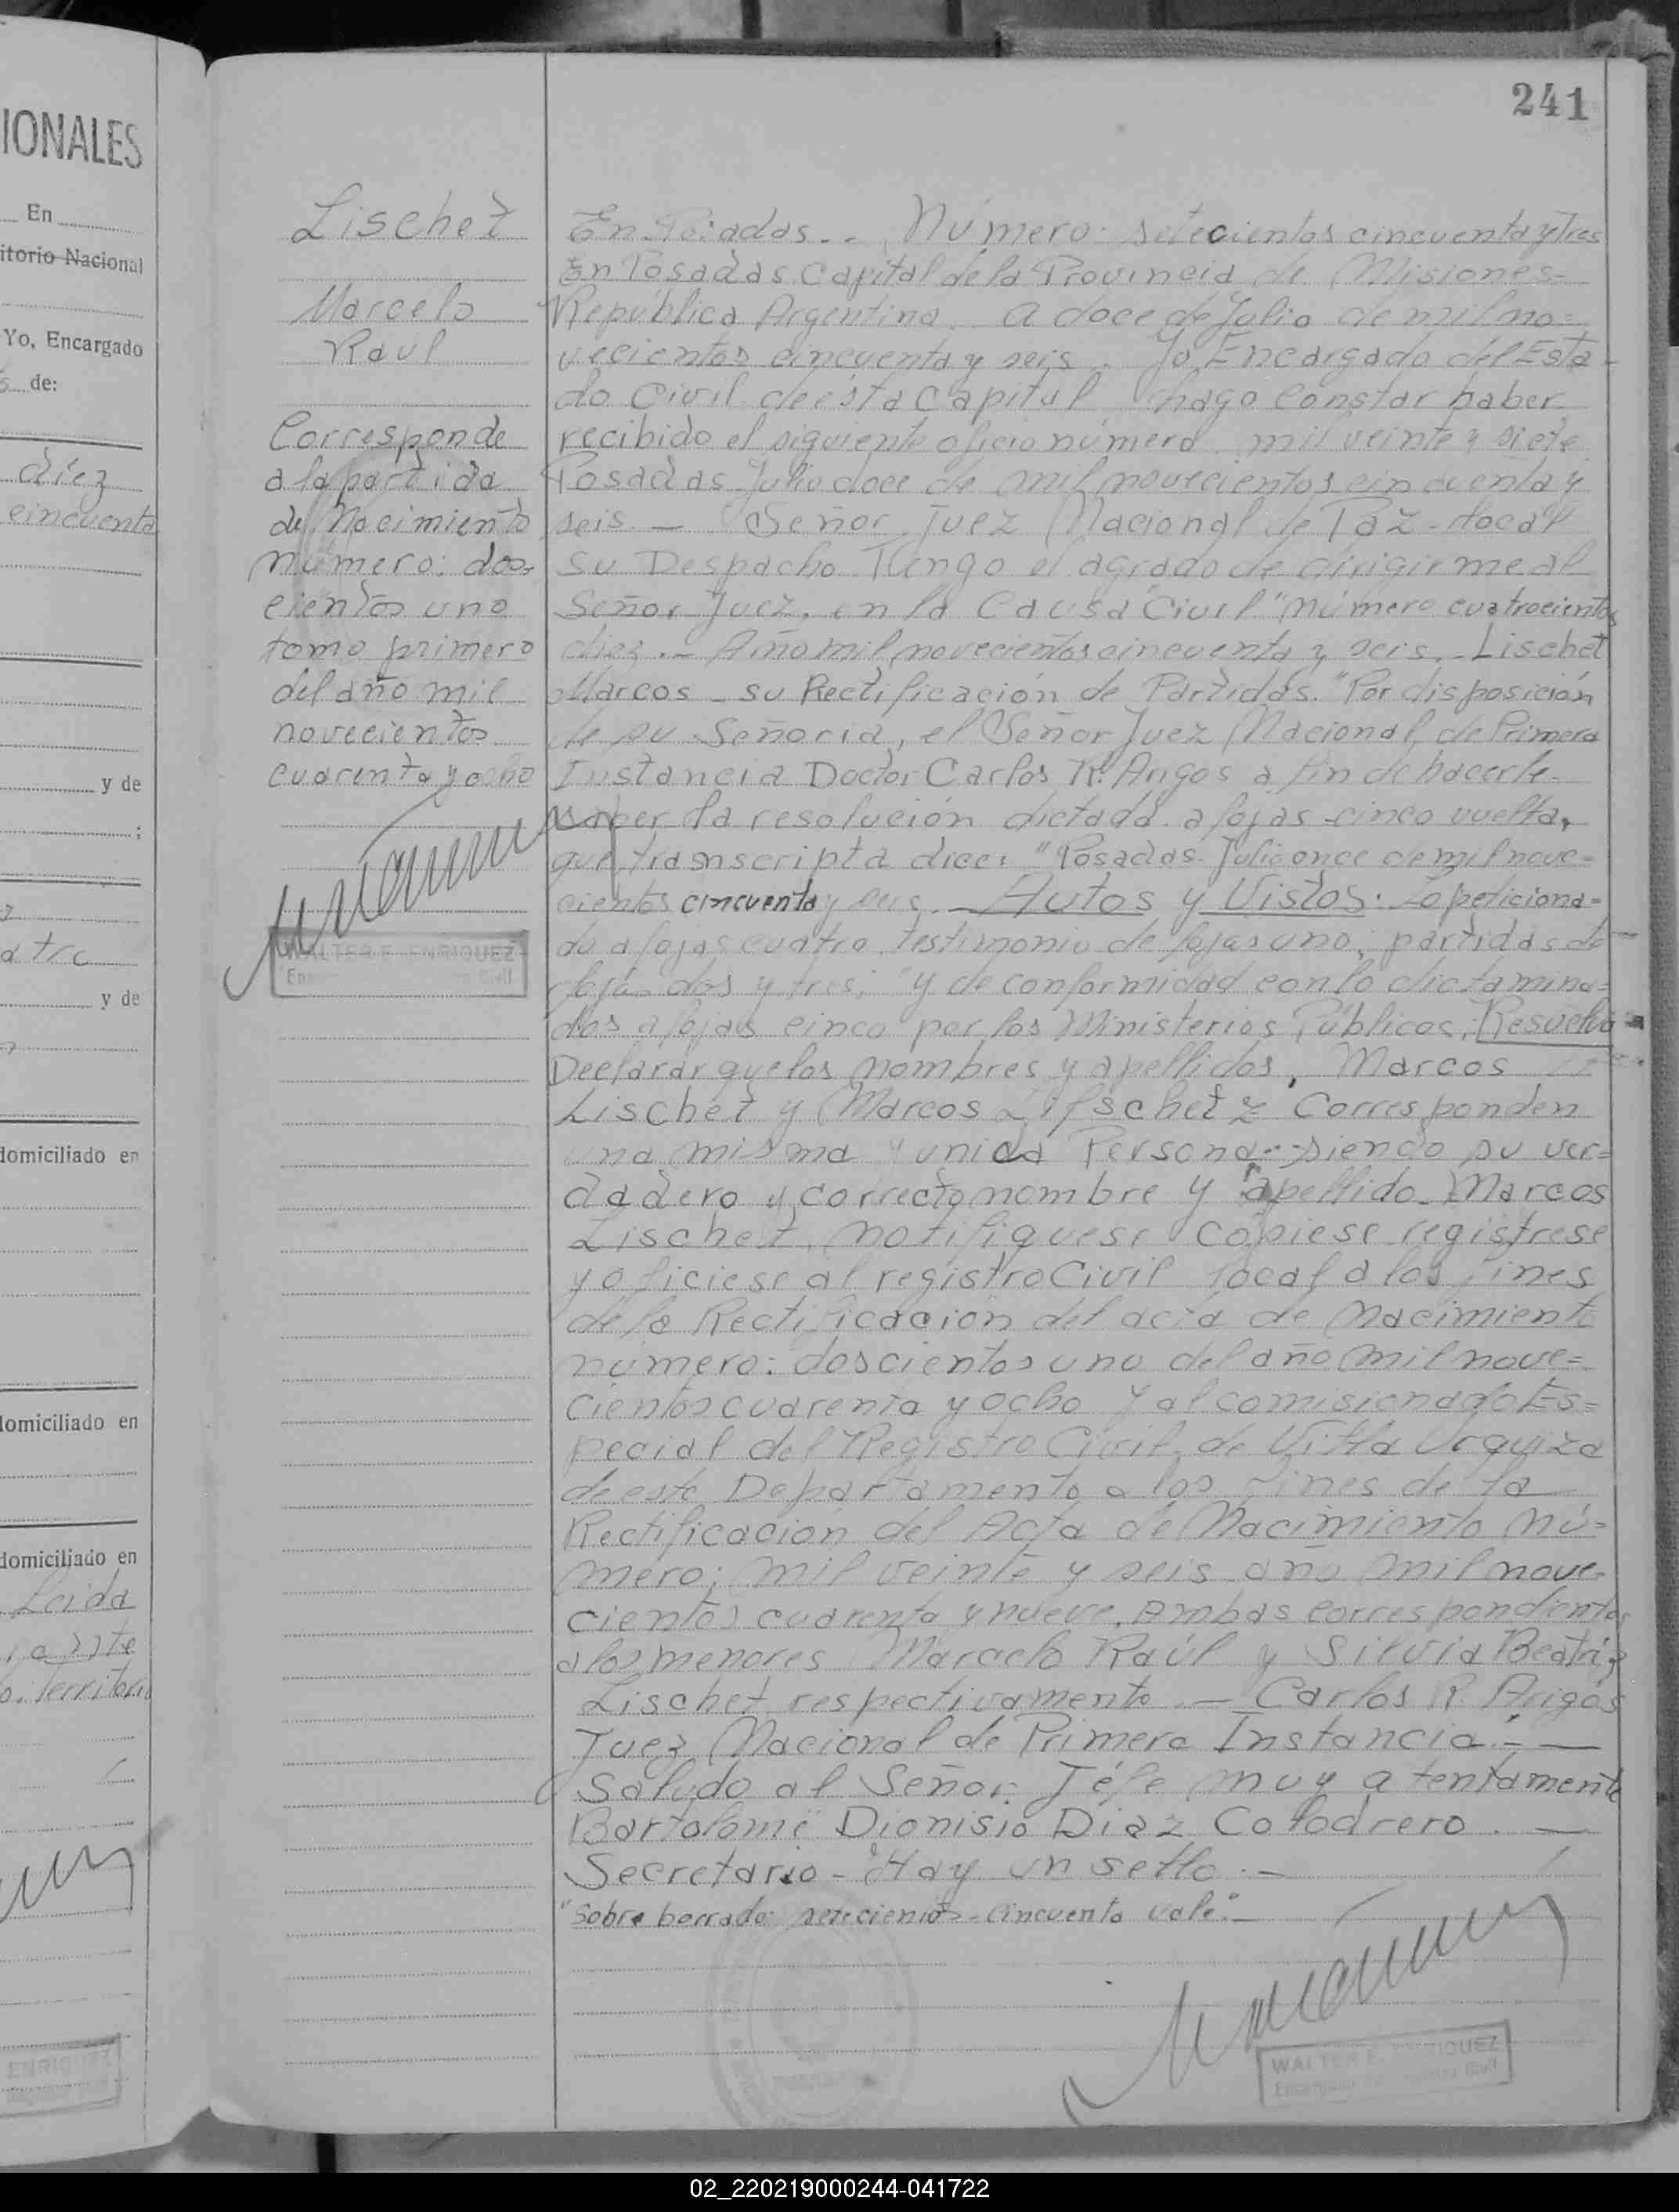 IONALES
En
itorio Nacional
Yo, Encargado
de:
diez
cincuenta
y de
;
atro
y de
domiciliado en
domiciliado en
domiciliado en
Leida
Territorio
ENRIQUEZ
241
Lischet
Marcelo
Raúl
Corresponde
a la partida
de Nacimiento
número: dos-
cientos uno
tomo primero
del año mil
novecientos
cuarenta y ocho
WALTER E. ENRIQUEZ
Civil
En Posadas.. Número: setecientos cincuenta y tres
En Posadas Capital de la Provincia de Misiones-
República Argentina. A doce de Julio de mil no=
vecientos cincuenta y seis. Yo Encargado del Esta-
do Civil de ésta Capital hago constar haber
recibido el siguiente oficio número mil veinte y siete
Posadas Julio doce de mil novecientos cincuenta y
seis. — Señor Juez Nacional de Paz - local
su Despacho Tengo el agrado de dirigirme al
Señor Juez, en la Causa "Civil" número cuatrocientos
diez.- Año mil novecientos cincuenta y seis.- Lischet
Marcos - su Rectificación de Partidas." Por disposición
de su Señoria, el Señor Juez Nacional de Primera
Instancia Doctor Carlos R. Arigos a fin de hacerle
saber la resolución dictada a fojas cinco vuelta,
que transcripta dice: "Posadas Julio once de mil nove=
cientos cincuenta y seis. — Autos y Vistos: Lo peticiona=
do a fojas cuatro, testimonio de fojas uno, partidas de
fojas dos y tres; "y de conformidad con lo dictamina=
dos a fojas cinco por los Ministerios Públicos; Resuelvo
Declarar que los nombres y apellidos, Marcos
Lischet y Marcos Lifschetz Corresponden
una misma y unica Persona siendo su ver=
dadero y correcto nombre y apellido Marcos
Lischet, notifiquese copiese registrese
y oficiese al registro Civil local a los fines
de la Rectificación del acta de Nacimiento
número: doscientos uno del año mil nove=
cientos cuarenta y ocho y al comisionado Es=
pecial del Registro Civil de Villa Urquiza
de este Departamento a los fines de la
Rectificación del Acta de Nacimiento Nú=
mero; mil veinte y seis año mil nove-
cientos cuarenta y nueve, Ambas correspondientes
a los menores Marcelo Raúl y Silvia Beatriz
Lischet respectivamente. — Carlos R. Arigós
Juez Nacional de Primera Instancia.- —
Saludo al Señor Jefe muy atentamente
Bartolomé Dionisio Diaz Colodrero. —
Secretario - Hay un sello.-
"Sobre borrado: setecientos - cincuenta vale."-
WALTER E. ENRIQUEZ
Encargado del Registro Civil
02_220219000244-041722